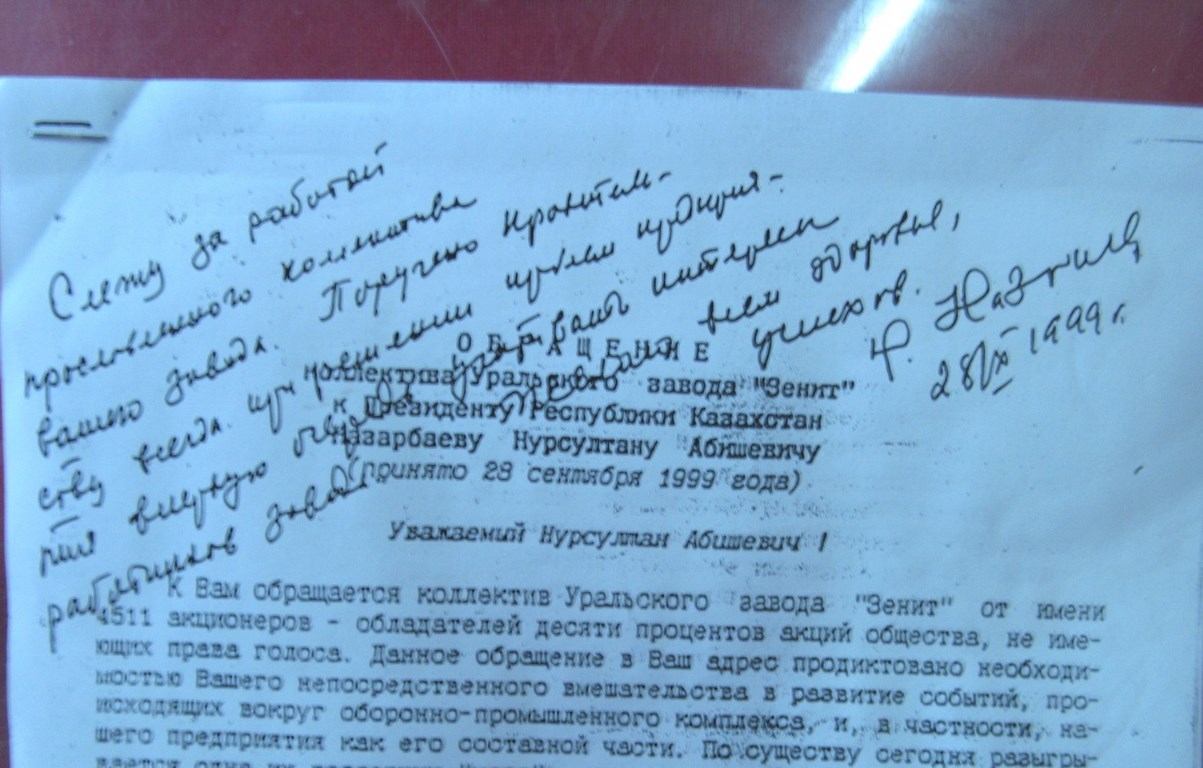 Слежу за работой
прославленного коллектива
вашего завода. Поручено правитель-
ству всегда при решении проблем предприя-
тия в первую очередь учитывать интересы
работников завода. Желаю всем здоровья,
успехов.
Н. Назарб
28/IX 1999 г.
ОБРАЩЕНИЕ
коллектива Уральского завода "Зенит"
к Президенту Республики Казахстан
Назарбаеву Нурсултану Абишевичу
(принято 28 сентября 1999 года)
Уважаемый Нурсултан Абишевич !
К Вам обращается коллектив Уральского завода "Зенит" от имени
4511 акционеров - обладателей десяти процентов акций общества, не име-
ющих права голоса. Данное обращение в Ваш адрес продиктовано необходи-
мостью Вашего непосредственного вмешательства в развитие событий, про-
исходящих вокруг оборонно-промышленного комплекса, и, в частности, на-
шего предприятия как его составной части. По существу сегодня разыгры-
вается одна из